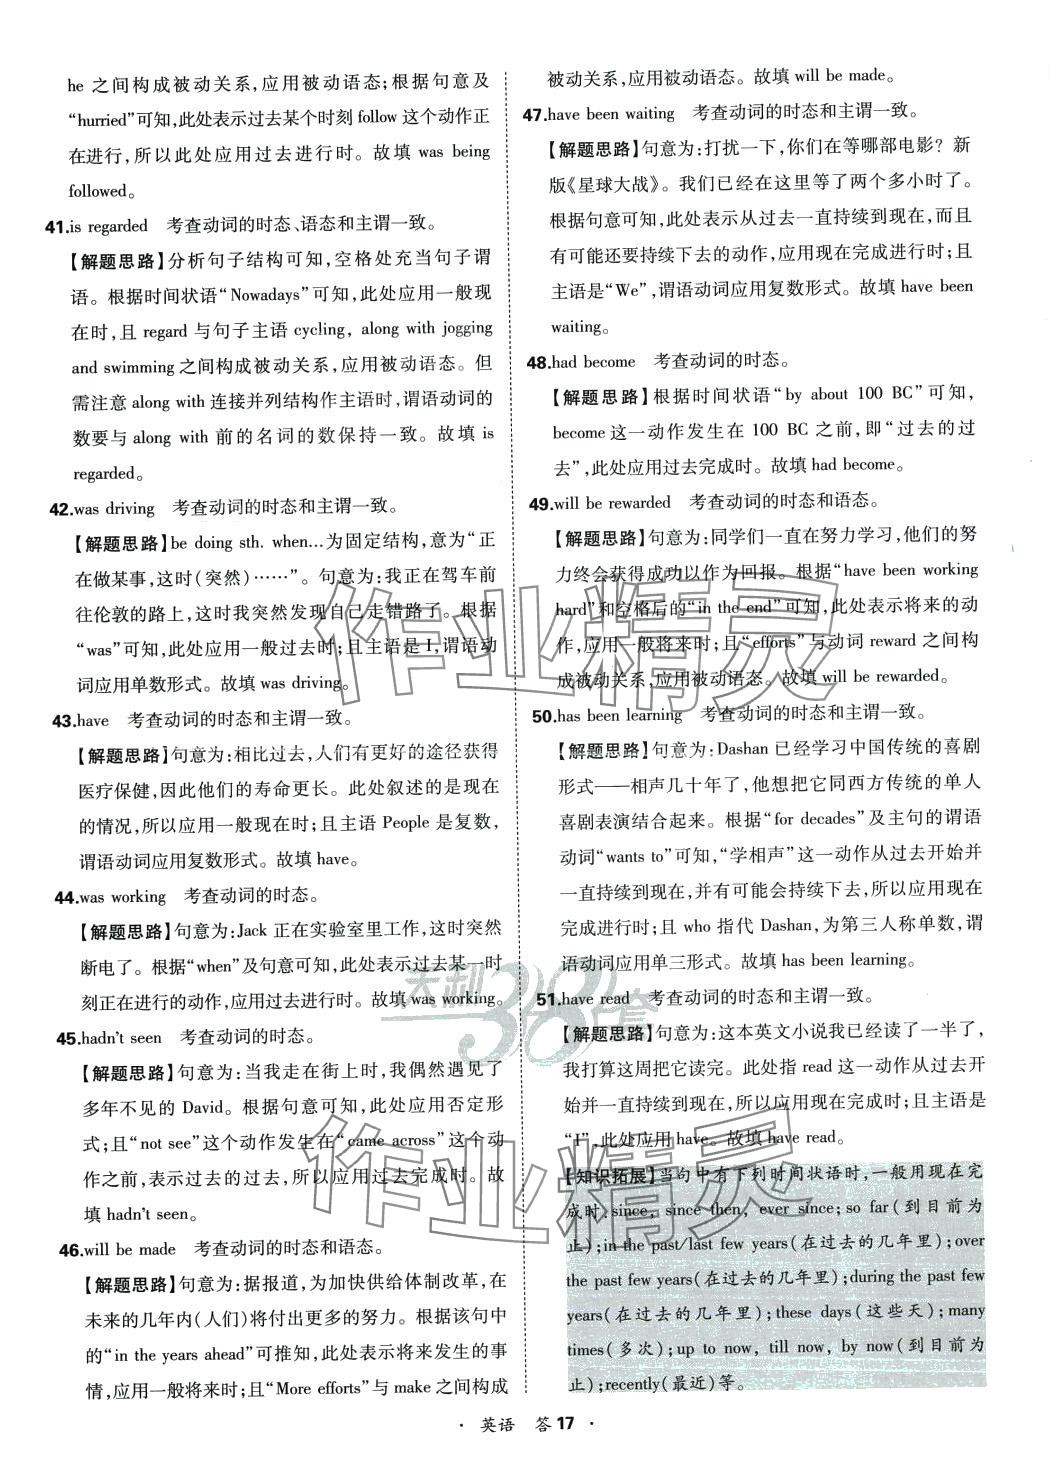 he 之间构成被动关系,应用被动语态;根据句意及
“hurried”可知,此处表示过去某个时刻 follow 这个动作正
在进行,所以此处应用过去进行时。故填 was being
followed。
41.is regarded 考查动词的时态、语态和主谓一致。
【解题思路】分析句子结构可知,空格处充当句子谓
语。根据时间状语“Nowadays”可知,此处应用一般现
在时,且 regard 与句子主语 cycling, along with jogging
and swimming 之间构成被动关系,应用被动语态。但
需注意 along with 连接并列结构作主语时,谓语动词的
数要与 along with 前的名词的数保持一致。故填 is
regarded。
42.was driving 考查动词的时态和主谓一致。
【解题思路】be doing sth. when…为固定结构,意为“正
在做某事,这时(突然)……”。句意为:我正在驾车前
往伦敦的路上,这时我突然发现自己走错路了。根据
“was”可知,此处应用一般过去时;且主语是 I,谓语动
词应用单数形式。故填 was driving。
43.have 考查动词的时态和主谓一致。
【解题思路】句意为:相比过去,人们有更好的途径获得
医疗保健,因此他们的寿命更长。此处叙述的是现在
的情况,所以应用一般现在时;且主语 People 是复数,
谓语动词应用复数形式。故填 have。
44.was working 考查动词的时态。
【解题思路】句意为:Jack 正在实验室里工作,这时突然
断电了。根据“when”及句意可知,此处表示过去某一时
刻正在进行的动作,应用过去进行时。故填 was working。
45.hadn't seen 考查动词的时态。
【解题思路】句意为:当我走在街上时,我偶然遇见了
多年不见的 David。根据句意可知,此处应用否定形
式;且“not see”这个动作发生在“came across”这个动
作之前,表示过去的过去,所以应用过去完成时。故
填 hadn't seen。
46.will be made 考查动词的时态和语态。
【解题思路】句意为:据报道,为加快供给体制改革,在
未来的几年内(人们)将付出更多的努力。根据该句中
的“in the years ahead”可推知,此处表示将来发生的事
情,应用一般将来时;且“More efforts”与 make 之间构成
被动关系,应用被动语态。故填 will be made。
47.have been waiting 考查动词的时态和主谓一致。
【解题思路】句意为:打扰一下,你们在等哪部电影?新
版《星球大战》。我们已经在这里等了两个多小时了。
根据句意可知,此处表示从过去一直持续到现在,而且
有可能还要持续下去的动作,应用现在完成进行时;且
主语是“We”,谓语动词应用复数形式。故填 have been
waiting。
48.had become 考查动词的时态。
【解题思路】根据时间状语“by about 100 BC”可知,
become 这一动作发生在 100 BC 之前,即“过去的过
去”,此处应用过去完成时。故填 had become。
49.will be rewarded 考查动词的时态和语态。
【解题思路】句意为:同学们一直在努力学习,他们的努
力终会获得成功以作为回报。根据“have been working
hard”和空格后的“in the end”可知,此处表示将来的动
作,应用一般将来时;且“efforts”与动词 reward 之间构
成被动关系,应用被动语态。故填 will be rewarded。
50.has been learning 考查动词的时态和主谓一致。
【解题思路】句意为:Dashan 已经学习中国传统的喜剧
形式——相声几十年了,他想把它同西方传统的单人
喜剧表演结合起来。根据“for decades”及主句的谓语
动词“wants to”可知,“学相声”这一动作从过去开始并
一直持续到现在,并有可能会持续下去,所以应用现在
完成进行时;且 who 指代 Dashan,为第三人称单数,谓
语动词应用单三形式。故填 has been learning。
51.have read 考查动词的时态和主谓一致。
【解题思路】句意为:这本英文小说我已经读了一半了,
我打算这周把它读完。此处指 read 这一动作从过去开
始并一直持续到现在,所以应用现在完成时;且主语是
“I”,此处应用 have。故填 have read。
【知识拓展】当句中有下列时间状语时,一般用现在完
成时:since, since then, ever since; so far(到目前为
止);in the past/last few years(在过去的几年里);over
the past few years(在过去的几年里);during the past few
years(在过去的几年里);these days(这些天);many
times(多次);up to now, till now, by now(到目前为
止);recently(最近)等。
· 英语 答17 ·
作业精灵
天利38套
作业精灵